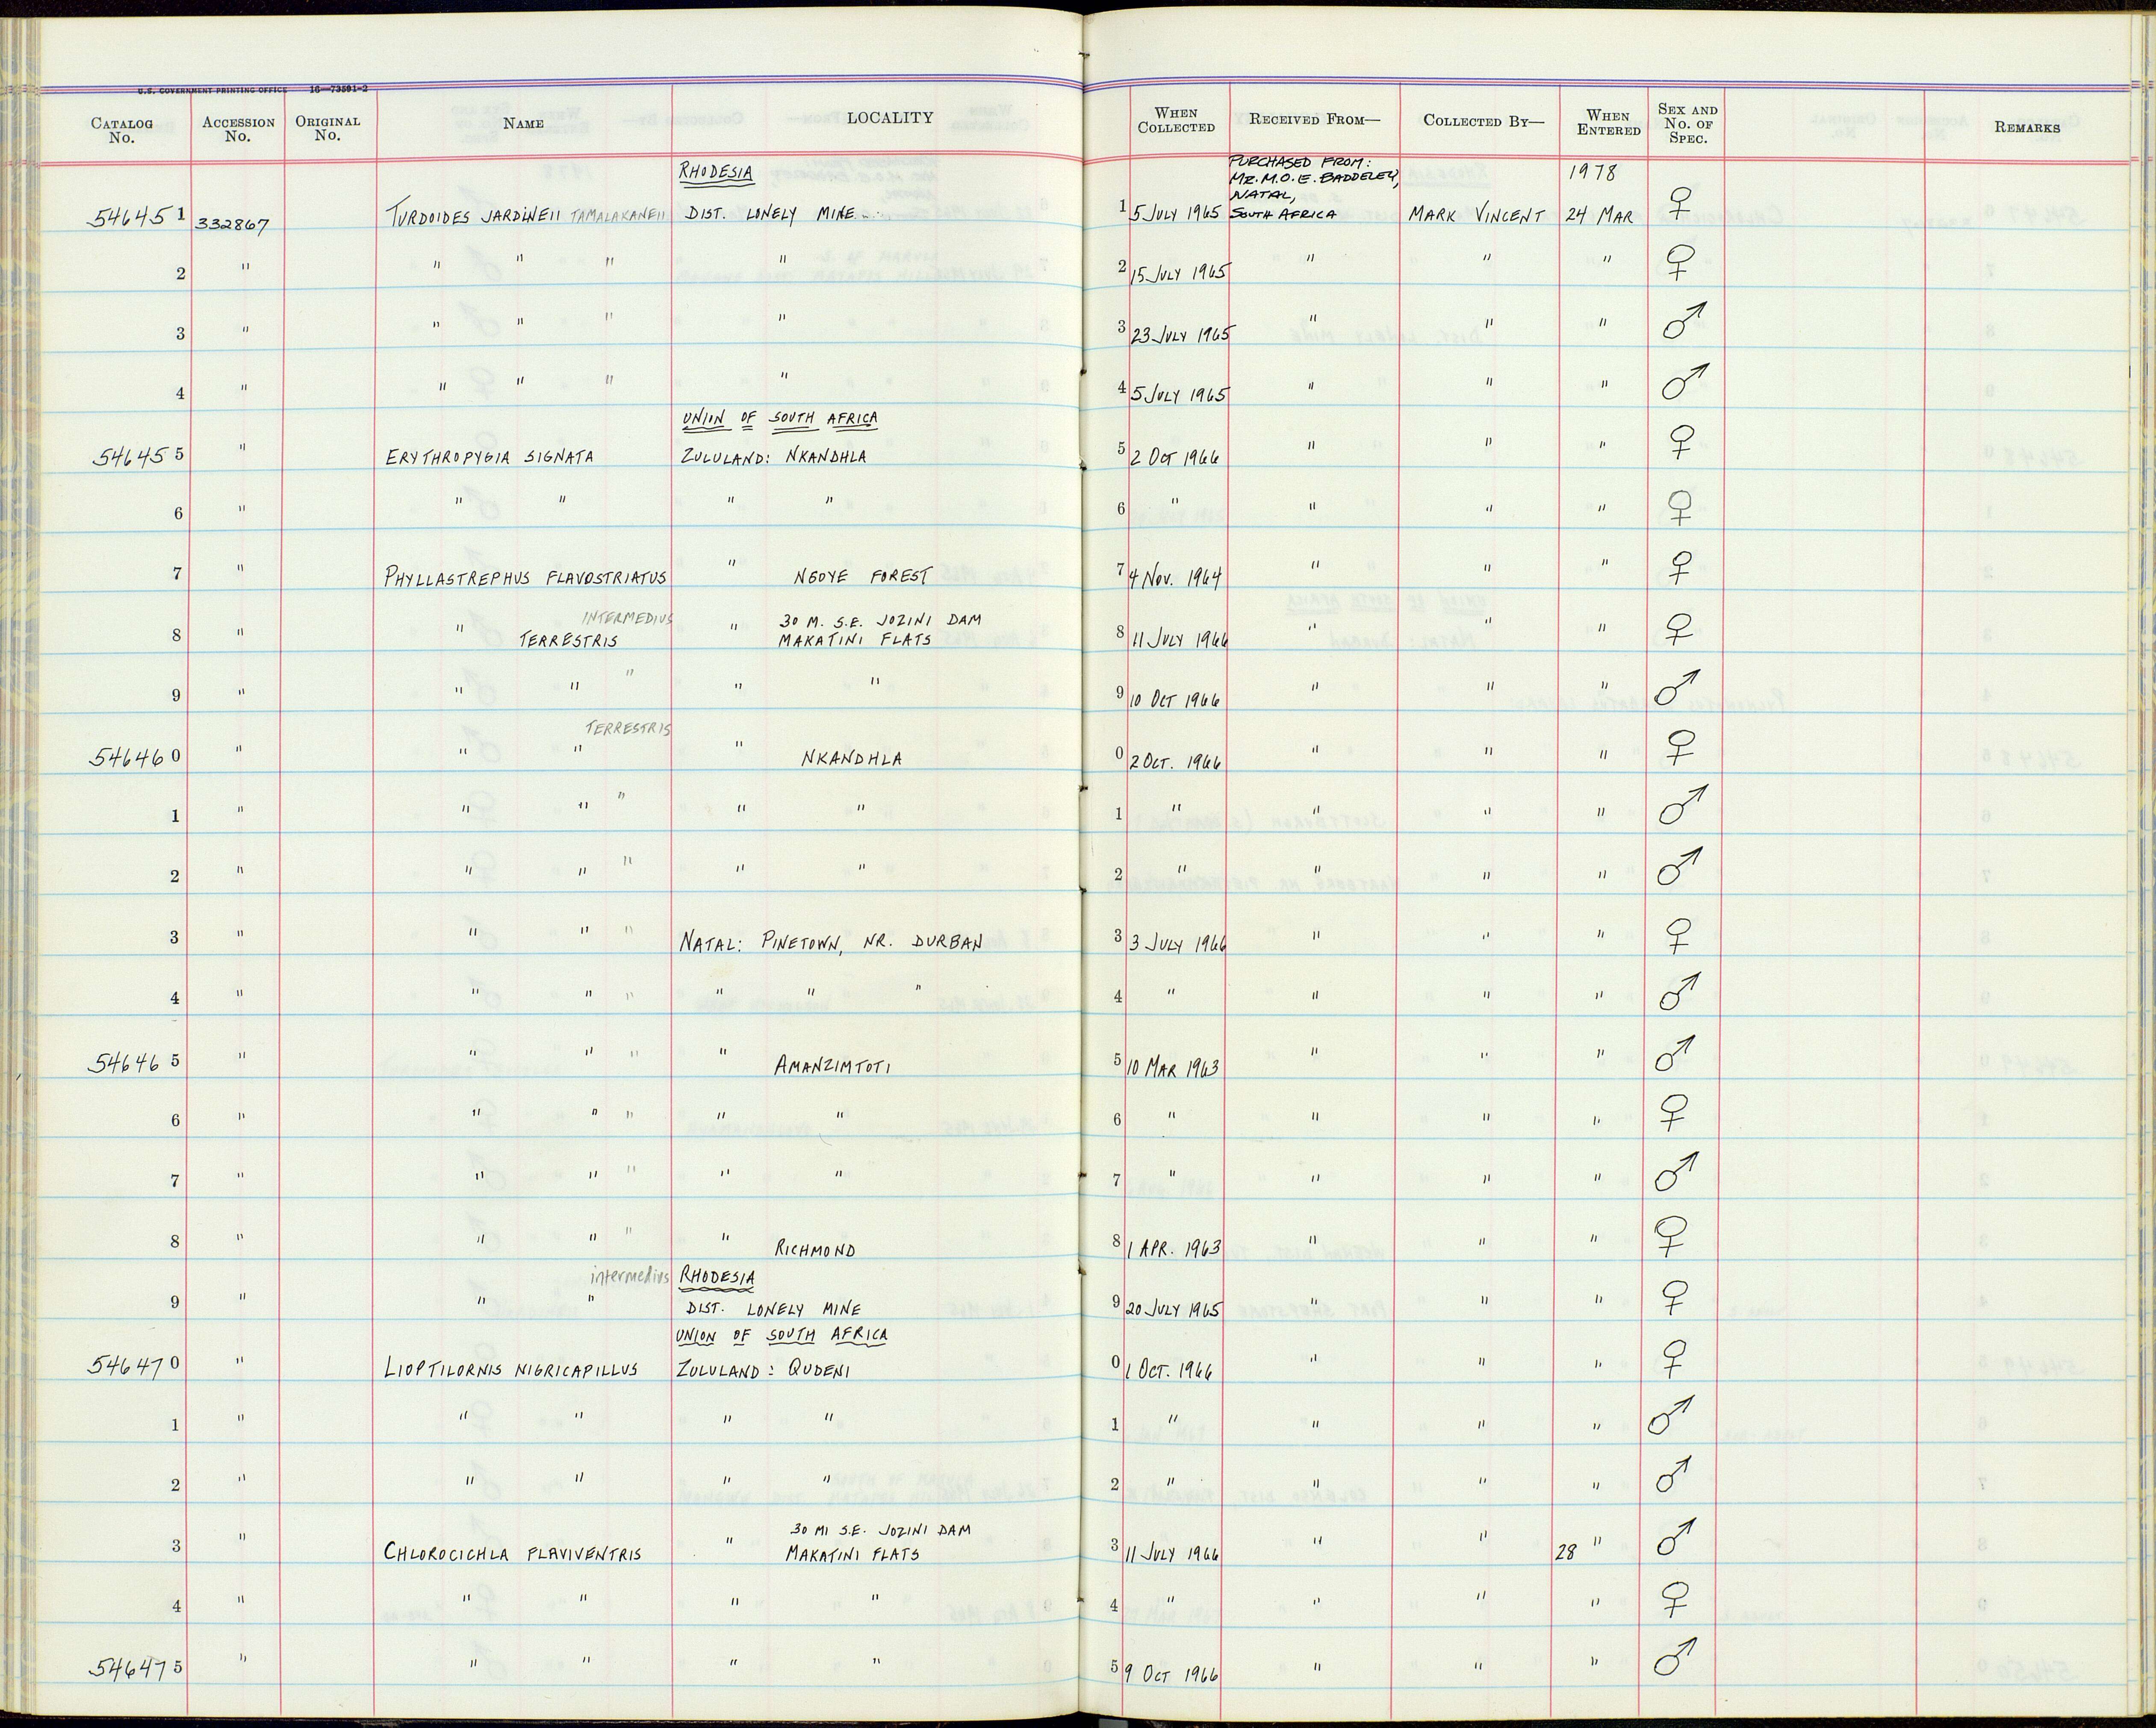 U.S. GOVERNMENT PRINTING OFFICE 16—73591-2
CATALOG No. ACCESSION No. ORIGINAL No. NAME LOCALITY WHEN COLLECTED RECEIVED FROM— COLLECTED BY— WHEN ENTERED SEX AND No. OF SPEC. REMARKS
RHODESIA PURCHASED FROM: MR. M.O.E. BADDELEY, NATAL, 1978
546451 332867 TURDOIDES JARDINEII TAMALAKANEII DIST. LONELY MINE 1 5 JULY 1965 SOUTH AFRICA MARK VINCENT 24 MAR ♀
2 " " " " " 2 15 JULY 1965 " " " ♀
3 " " " " " 3 23 JULY 1965 " " " ♂
4 " " " " " 4 5 JULY 1965 " " " ♂
UNION OF SOUTH AFRICA
546455 " ERYTHROPYGIA SIGNATA ZULULAND: NKANDHLA 5 2 OCT 1966 " " " ♀
6 " " " " " 6 " " " " ♀
7 " PHYLLASTREPHUS FLAVOSTRIATUS " NGOYE FOREST 7 4 NOV. 1964 " " " ♀
INTERMEDIUS 30 M. S.E. JOZINI DAM
8 " " TERRESTRIS " MAKATINI FLATS 8 11 JULY 1966 " " " ♀
9 " " " " " " 9 10 OCT 1966 " " " ♂
TERRESTRIS
546460 " " " " NKANDHLA 0 2 OCT. 1966 " " " ♀
1 " " " " " " 1 " " " " ♂
2 " " " " " " 2 " " " " ♂
3 " " " " NATAL: PINETOWN, NR. DURBAN 3 3 JULY 1966 " " " ♀
4 " " " " " " " 4 " " " " ♂
546465 " " " " " AMANZIMTOTI 5 10 MAR 1963 " " " ♂
6 " " " " " " 6 " " " " ♀
7 " " " " " " 7 " " " " ♂
8 " " " " " RICHMOND 8 1 APR. 1963 " " " ♀
intermedius RHODESIA
9 " " " DIST. LONELY MINE 9 20 JULY 1965 " " " ♀
UNION OF SOUTH AFRICA
546470 " LIOPTILORNIS NIGRICAPILLUS ZULULAND: QUDENI 0 1 OCT. 1966 " " " ♀
1 " " " " " 1 " " " " ♂
2 " " " " " 2 " " " " ♂
30 MI S.E. JOZINI DAM
3 " CHLOROCICHLA FLAVIVENTRIS " MAKATINI FLATS 3 11 JULY 1966 " " 28 " ♂
4 " " " " " 4 " " " " ♀
546475 " " " " " 5 9 OCT 1966 " " " ♂